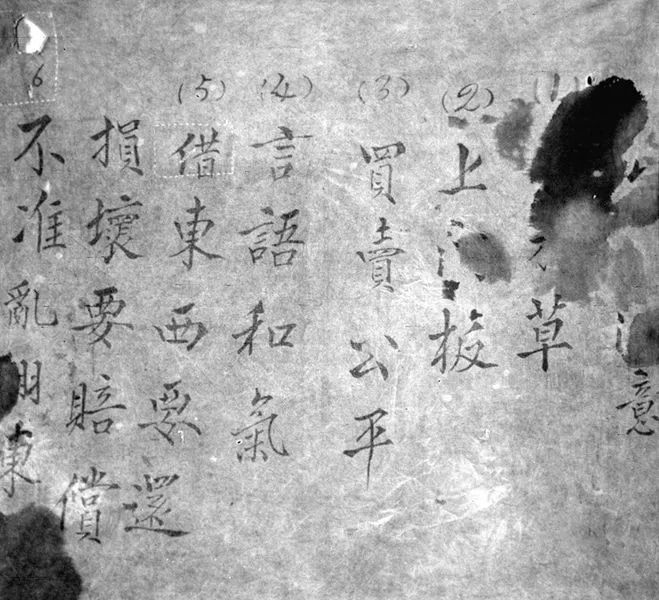 意
(1) 草
(2) 上板
(3) 買賣公平
(4) 言語和氣
(5) 借東西要還
損壞要賠償
6 不准亂用東